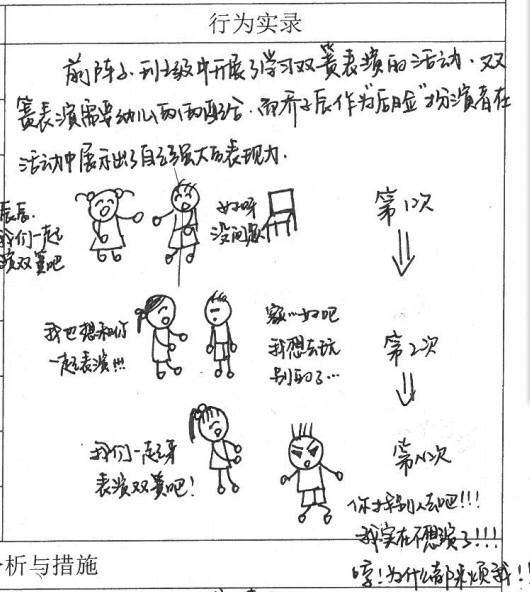 行为实录
前阵子,班级中开展了学习双簧表演的活动,双
簧表演需要幼儿两两配合,而乔之辰作为"后脸"扮演者在
活动中展示出了自己强大的表现力.
辰辰,
我们一起
演双簧吧
好呀
没问题
第1次
我也想和你
一起表演!!!
额…好吧
我想去玩
别的了…
第2次
我们一起来
表演双簧吧!
第N次
你找别人去吧!!!
我实在不想演了!!!
哼!为什么都来烦我!!
析与措施